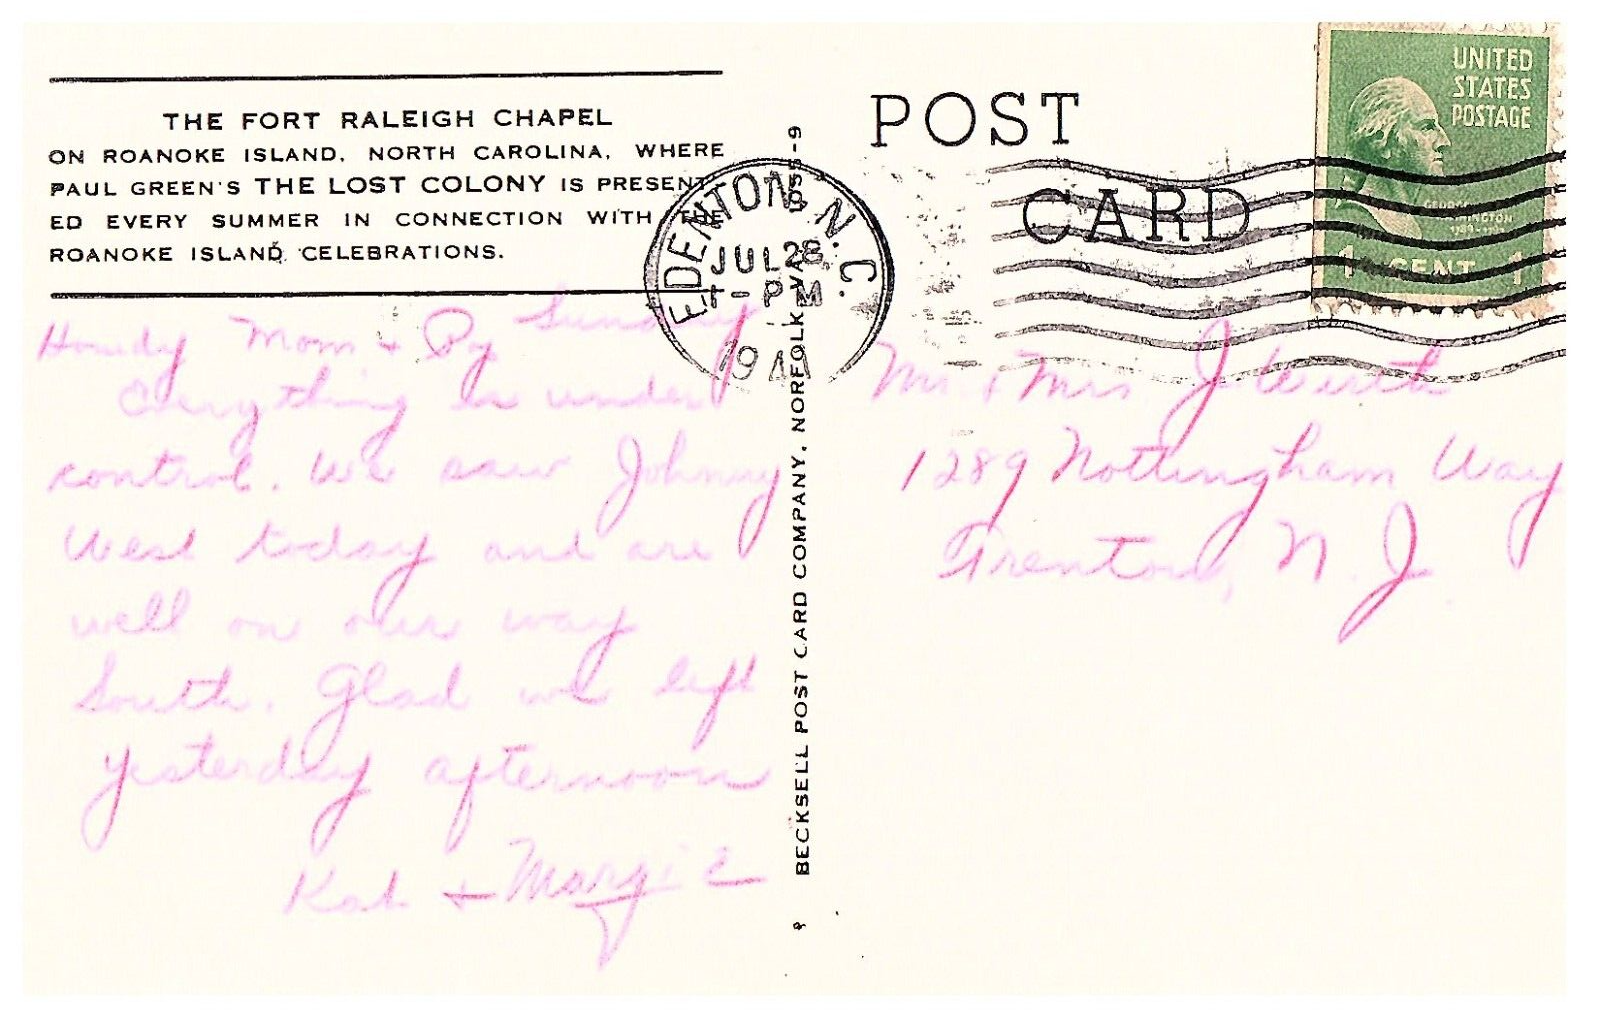 THE FORT RALEIGH CHAPEL
ON ROANOKE ISLAND, NORTH CAROLINA, WHERE
PAUL GREEN'S THE LOST COLONY IS PRESENT-
ED EVERY SUMMER IN CONNECTION WITH THE
ROANOKE ISLAND CELEBRATIONS.
Sunday
Howdy Mom + Py
Everything is under
control. We saw Johnny
West today and are
well on our way
South. Glad we left
yesterday afternoon
Kat + Margie
BECKSELL POST CARD COMPANY, NORFOLK, VA.
EDENTON, N.C.
JUL 28
PM
POST
CARD
UNITED
STATES
POSTAGE
1 CENT 1
Mr. + Mrs J Wirth
1289 Nottingham Way
Trenton, N.J.